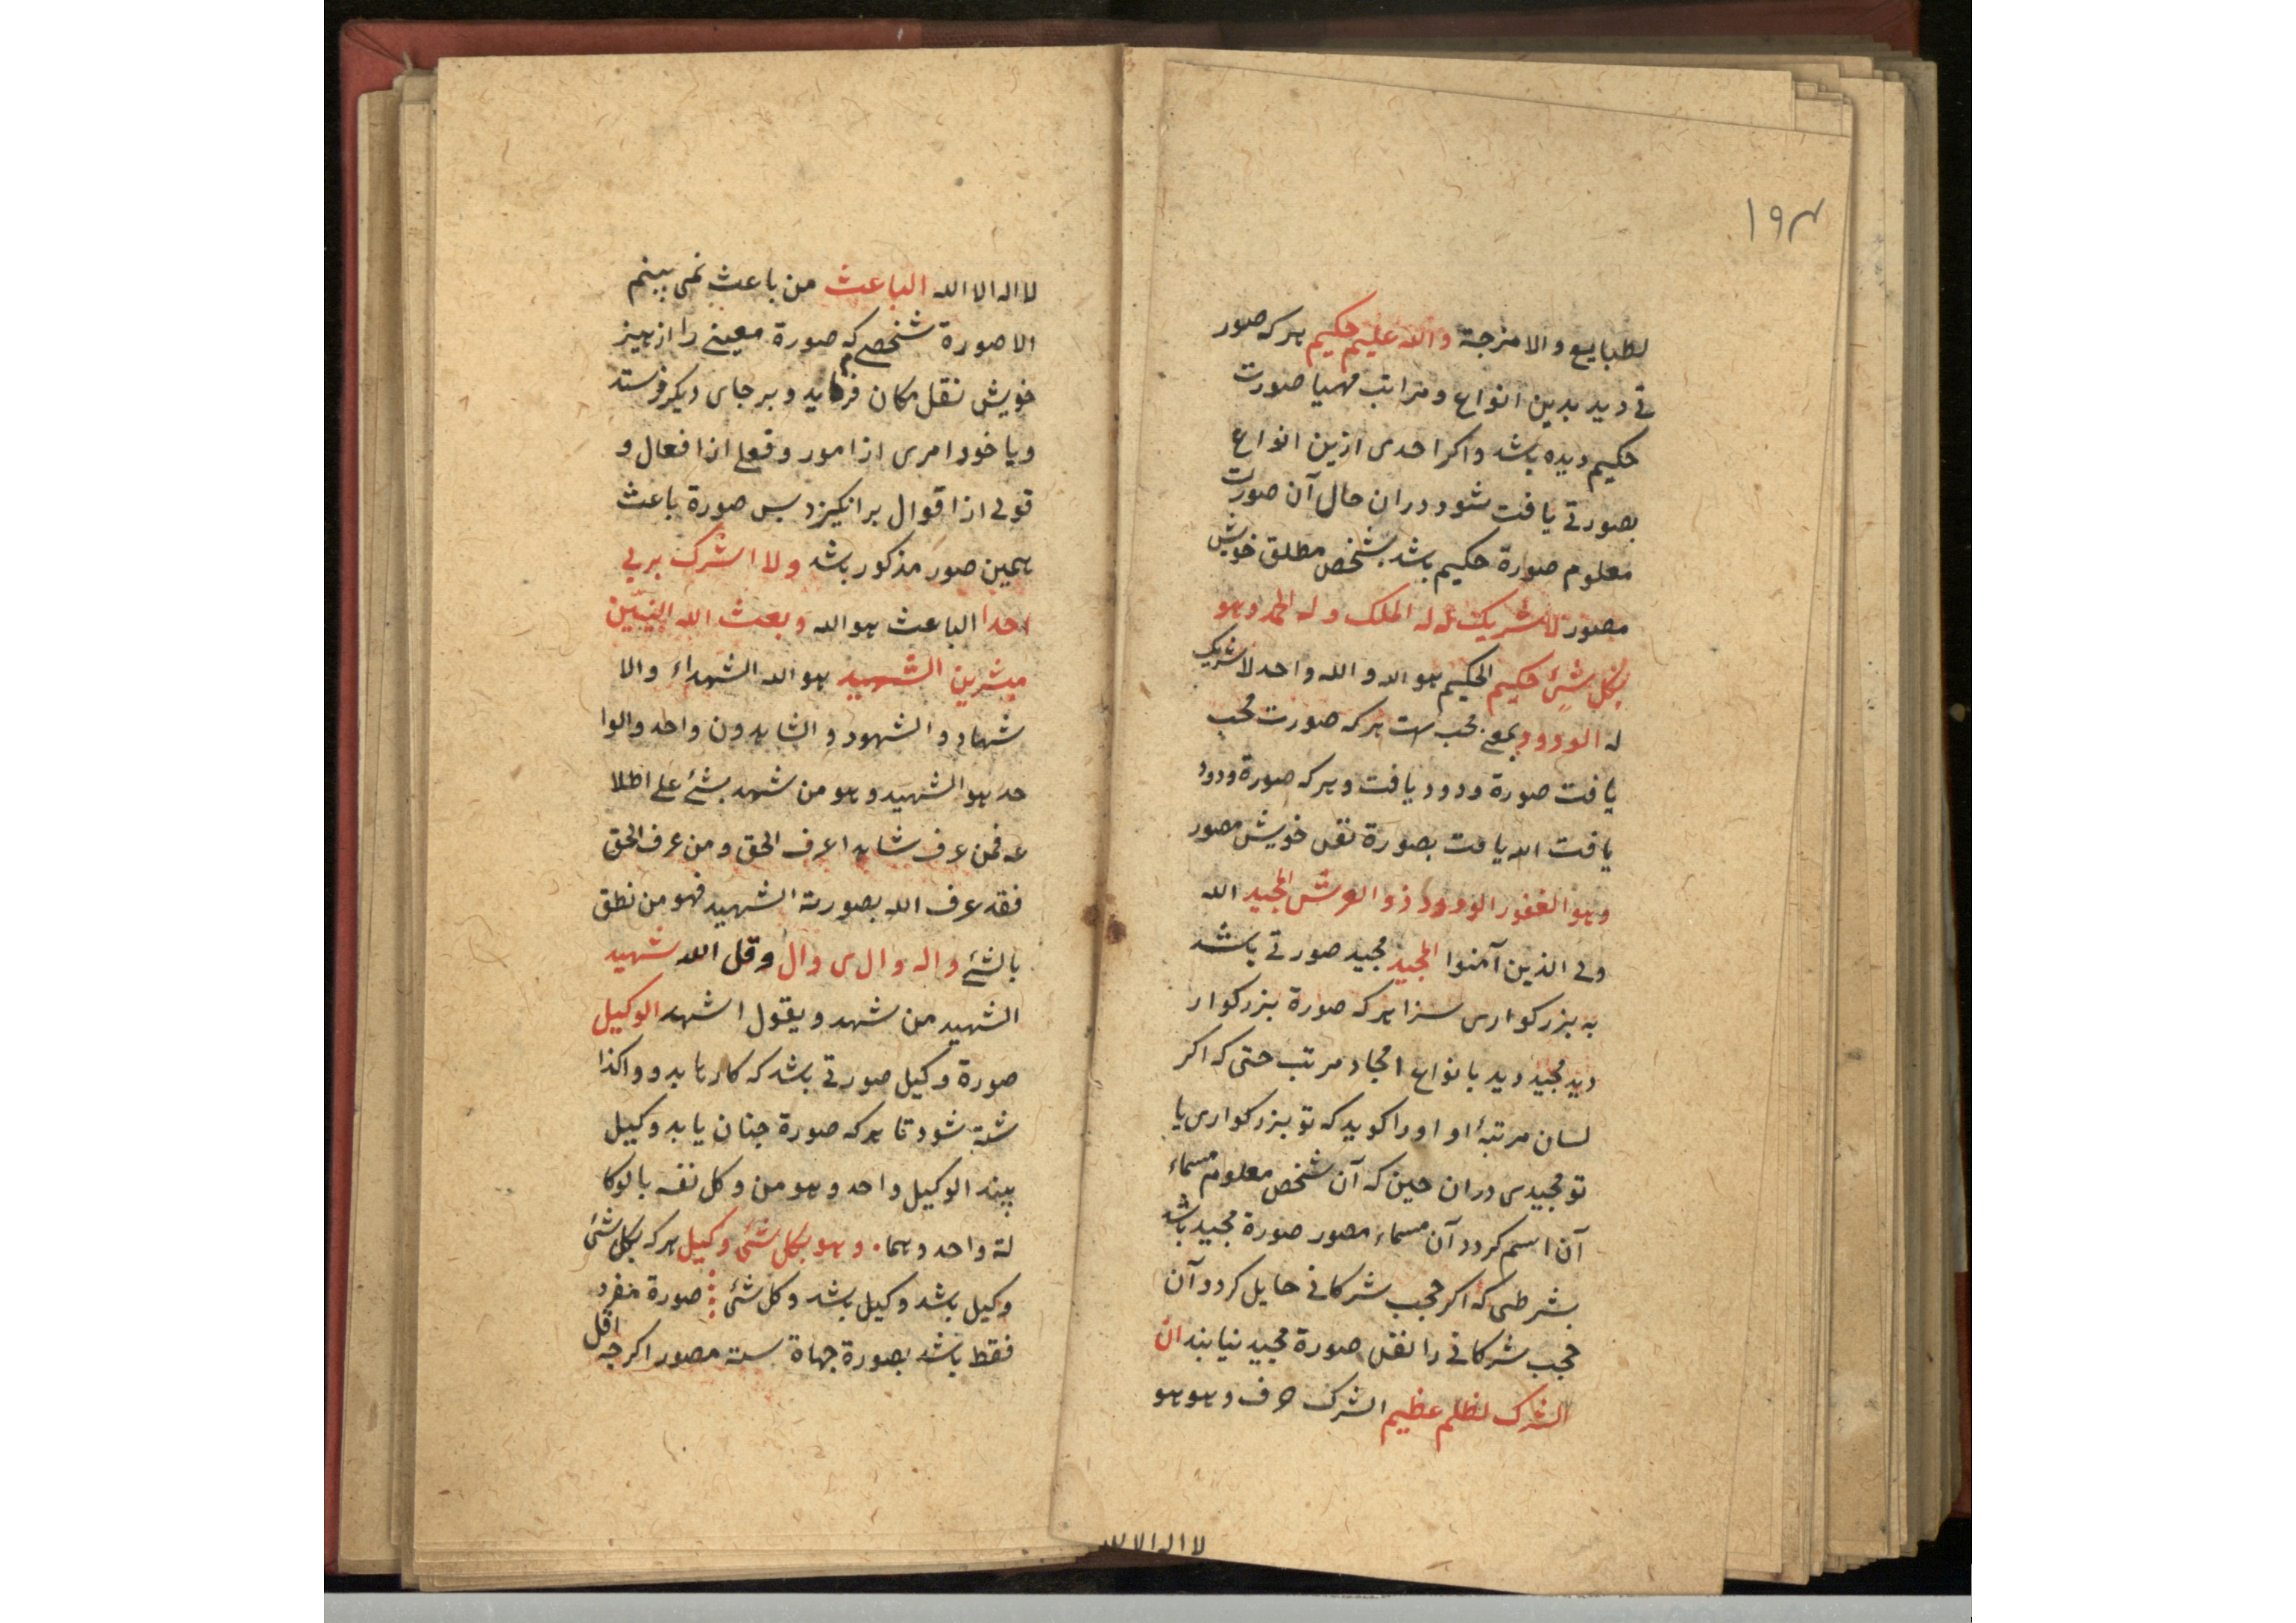 ۱۹۴
لطبایع و الامزجة والله علیم حکیم هر که صور
تی دید بدین انواع و مراتب مهیا صورت
حکیم دیده باشد و اکر احدی ازین انواع
بصورتی یافت شود در ان حال آن صورت
معلوم صورة حکیم باشد بشخص مطلق خویش
مصور لا شریک له له الملک و له الحمد وهو
بکل شئ حکیم الحکیم هو الله و الله واحد لا شریک
له الودود بمعنی محب است هر که صورت محب
یافت صورة ودود یافت و هر که صورة ودود
یافت الله یافت بصورة نفس خویش مصور
وهو الغفور الودود ذو العرش المجید الله
ولی الذین آمنوا المجید مجید صورتی باشد
به بزرکواری سزا هر که صورة بزرکوار
دید مجید دید بانواع امجاد مرتب حتی که اکر
لسان مرتبۀ او اورا کوید که تو بزرکواری یا
تو مجیدی دران حین که آن شخص معلوم مسماء
آن اسم کردد آن مسماء مصور صورة مجید باشد
بشرطی که اکر حجب شرکانی حایل کردد آن
حجب شرکانی را نفس صورة مجید نیابند ان
الشرک لظلم عظیم الشرک حرف و هو هو
لا اله الا الله
لا اله الا الله الباعث من باعث نمی بینم
الا صورة شخصی که صورة معینی را از حیز
خویش نقل مکان فرماید و بر جای دیکر فرستد
و یا خود امری از امور و فعلی از افعال و
قولی از اقوال بر انکیزد پس صورة باعث
همین صور مذکور باشد ولا اشرک بربی
احدا الباعث هو الله وبعث الله النبیّین
مبشرین الشهید هو الله الشهداء والا
شهاد و الشهود و الشاهدون واحد والوا
حد هو الشهید و هو من شهد بشئ علی اطلا
عه فمن عرف شاهدا عرف الحق و من عرف الحق
فقد عرف الله بصورته الشهید فهو من نطق
بالشئ واله وال ی وال وقل الله شهید
الشهید من شهد و یقول اشهد الوکیل
صورة وکیل صورتی باشد که کارها بدو واکذا
شته شود تا هر که صورة چنان یابد وکیل
بیند الوکیل واحد وهو من وکل نفسه بالوکا
لة واحد وهما وهو بکل شئ وکیل هر که بکل شئ
وکیل باشد وکیل باشد وکل شئ صورة منفرد
فقط باشد بصورة جهاة سته مصور اکر چه اقل